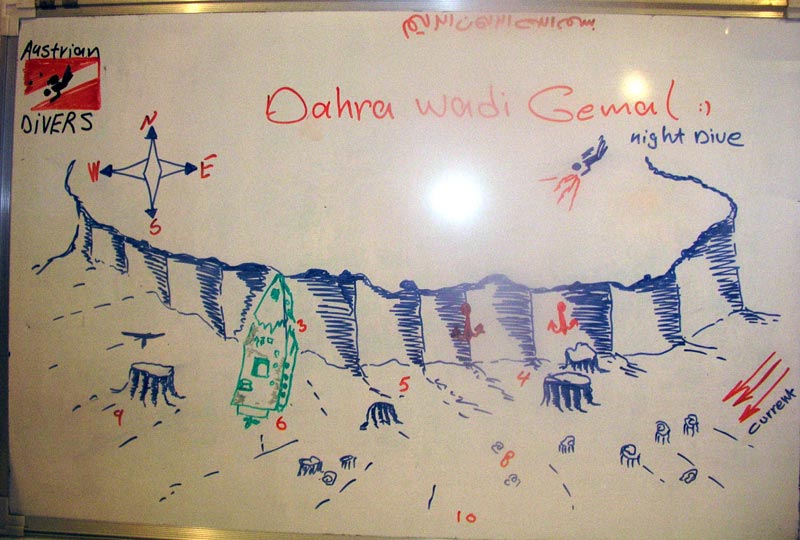 Austrian
DiVERS
Dahra wadi Gemal :)
night Dive
N
W E
S
3
5
4
9
6
current
8
10